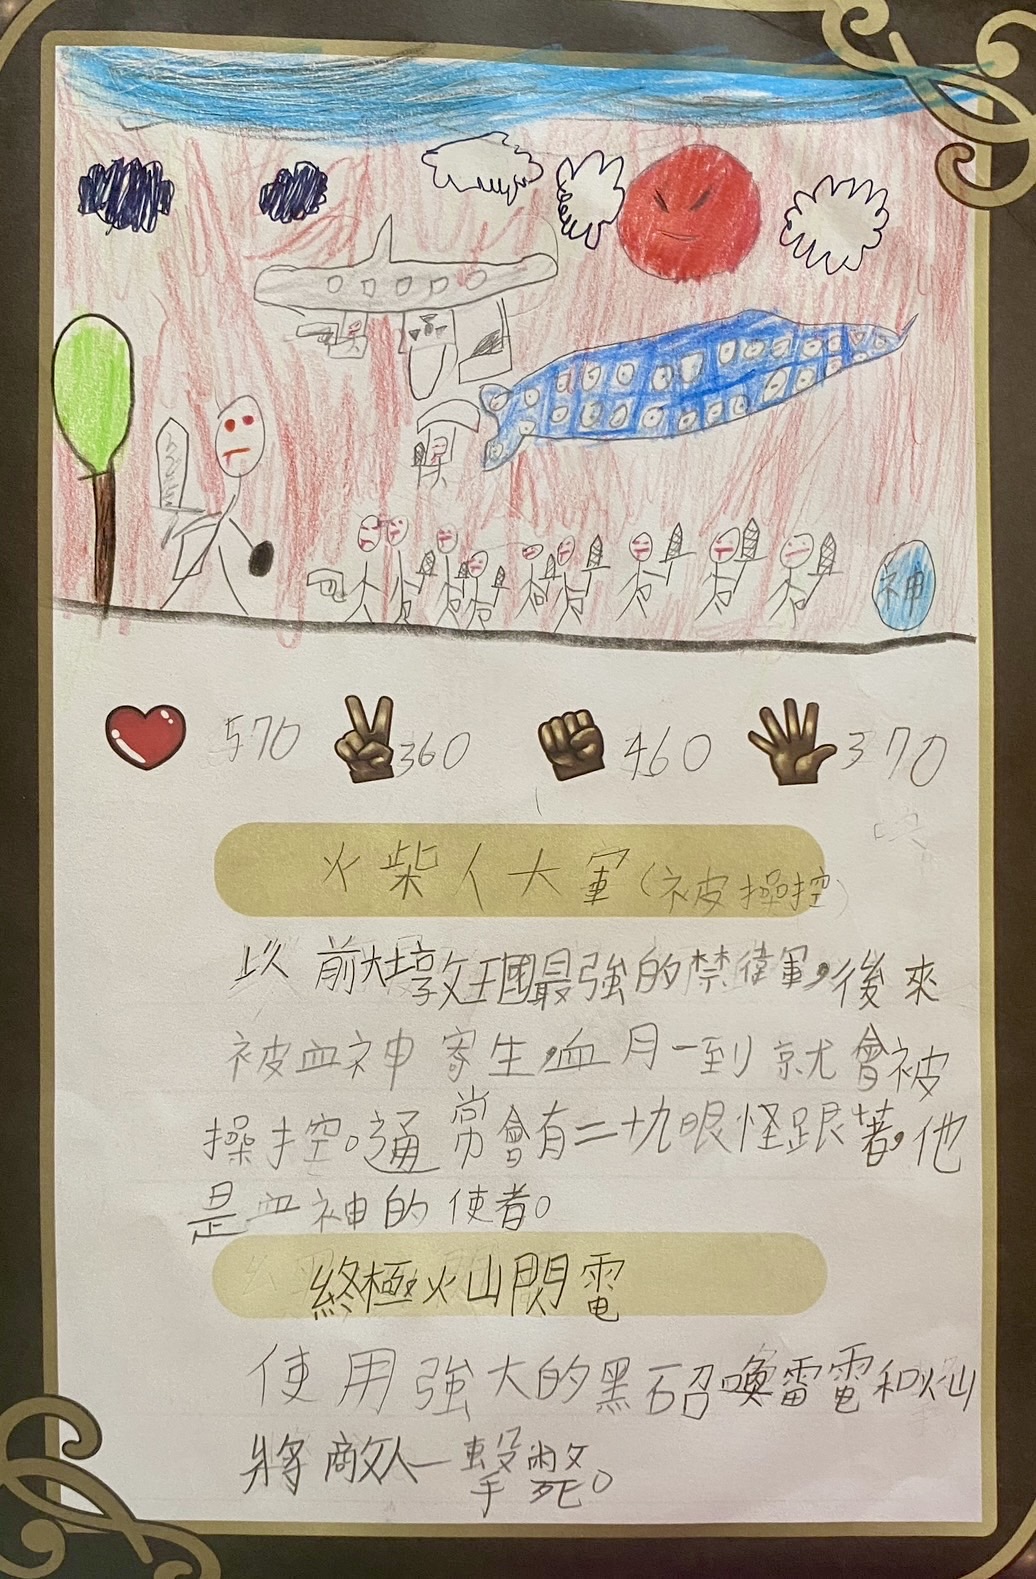 神
570 360 460 370
火柴人大軍(被操控)
以前大墩王國最強的禁衛軍,後來
被血神寄生,血月一到就會被
操控。通常會有二十九眼怪跟著,他
是血神的使者。
終極火山閃電
使用強大的黑石召喚雷電和火山
將敵人一擊斃。